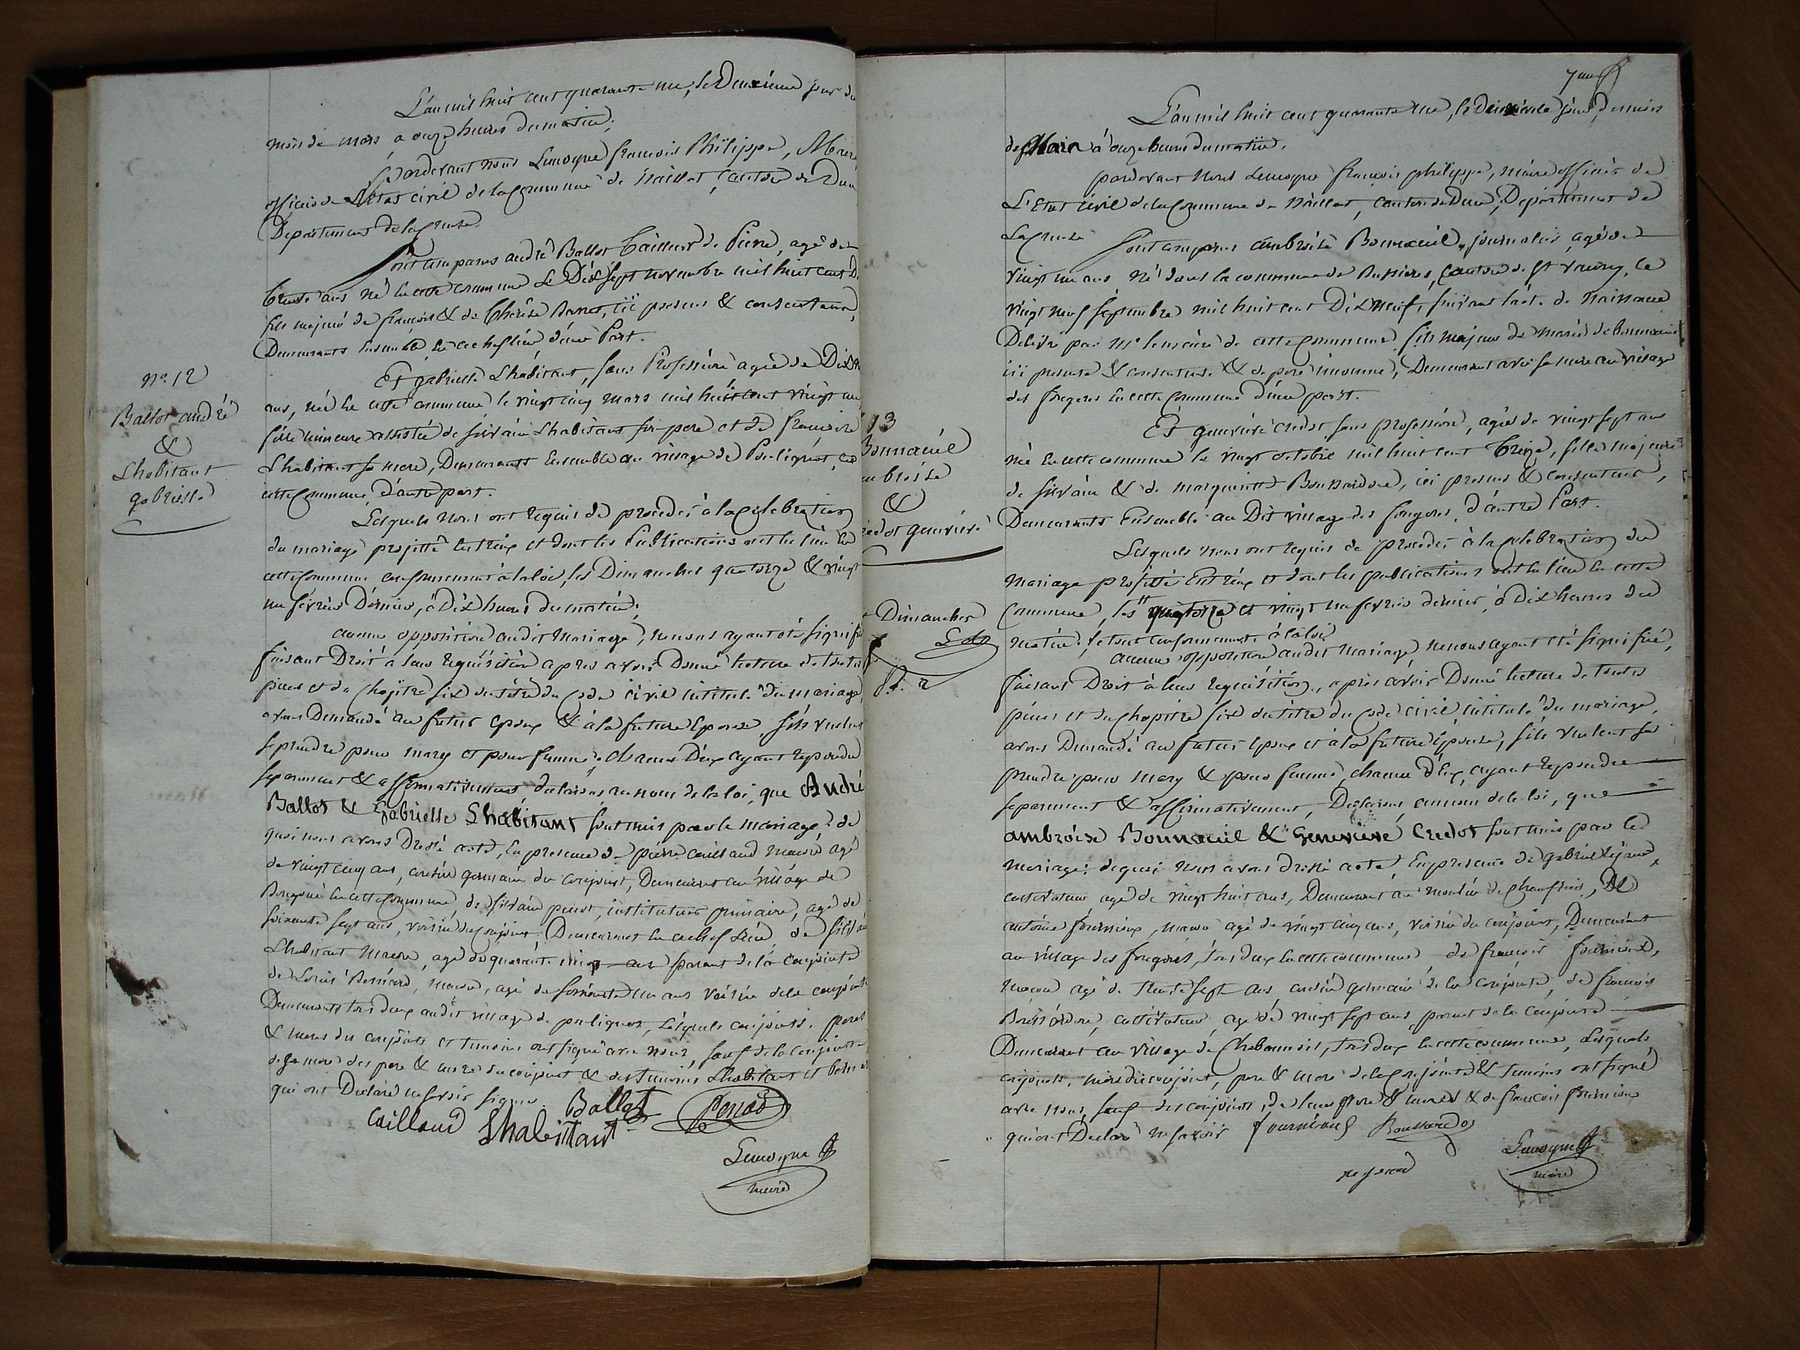 L'an mil huit cent quarante un, le Deuxième jour du
mois de mars à onze heures du matin;
Pardevant nous Lemoyne françois Philippe, Maire
officier de L'Etat civil de la Commune de Naillat, Canton de Dun
Département de la Creuse.
Sont comparus andré Ballot tailleur de Pierre, agé de
trente ans né en cette commune le Dix sept novembre mil huit cent
fils majeur de françois & de thérèse ici présens & consentans,
Demeurants Ensemble au chef lieu d'une Part.
Et gabrielle Lhabitant, sans Profession agée de Dix
ans, née En cette commune le vingt cinq mars mil huit cent vingt un
fille mineure assistée de Silvain Lhabitant son pere et de françoise
Lhabitant sa mere, Demeurants Ensemble au village de Poulignat, en
cette Commune, d'autre part.
Lesquels nous ont requis de procéder à la Celebration
du mariage projetté Entr'eux et dont les Publications ont eu lieu En
cette Commune conformement à la loi, les Dimanches quatorze & vingt
un février Dernier, à Dix heures du matin;
aucune opposition audit Mariage, ne nous ayant été signifiée
faisant Droit à leur requisition après avoir Donné lecture de toutes
pièces et du Chapitre six du titre du Code civil intitulé "du mariage,
avons Demandé au futur Epoux & à la future Epouse s'ils veulent
se prendre pour mary et pour femme, chacun D'eux ayant repondu
séparement & affirmativement declarons au nom de la loi, que André
Ballot & Gabrielle Lhabitant sont unis par le mariage: de
quoi nous avons Dressé acte, En presence de pierre Caillaud Macon, agé
de vingt cinq ans, cousin germain du conjoint, Demeurant au village de
En cette Commune de silvain penot, instituteur primaire, agé de
soixante sept ans, voisin du conjoint Demeurant En chef Lieu de silvain
Lhabitant Macon, agé de quarante cinq ans parent de la conjointe
de Louis Besnard, macon, agé de soixante un ans voisin de la conjointe
Demeurants tous deux audit village de poulignat, Lesquels conjoints, peres
& meres des conjoints et temoins ont signé avec nous, sauf de la conjointe
de sa mere des pere & mere du conjoint & des temoins Lhabitant et
qui ont Declaré ne savoir signer.
Ballot Penot
Caillaud Lhabittant
Lemoyne
maire
No. 12
Ballot andré
&
Lhabitant
gabrielle
L'an mil huit cent quarante un, le Deuxième jour,
de Mars à onze heures du matin.
pardevant nous Lemoyne françois philippe, maire officier de
L'Etat civil de la Commune de Naillat, canton de Dun, Département de
La Creuse
Sont comparus ambroise Bonnaeuil, journalier, agé de
vingt un ans né dans la commune de Bussière, Canton de St vaury, le
vingt neuf septembre mil huit cent Dix Neuf, suivant l'act. de naissance
Délivré par Mr le maire de cette commune fils majeur de marie de bonnaeuil
ici presente & consentante & de pere inconnu, Demeurant avec sa mere au village
des fougeres En cette Commune d'une part.
Et geneviève Credot sans profession, agée de vingt sept ans
née En cette commune le vingt octobre mil huit cent treize, fille majeure
de silvain & de marguerite Boussardon, ici presens & consentans,
Demeurants Ensemble au Dit village des fougeres, d'autre Part.
Lesquels nous ont requis de proceder à la celebration du
mariage projetté Entr'eux et dont les publications ont eu lieu En cette
Commune, les quatorze et vingt un fevrier dernier, à Dix heures du
matin, le tout conformement à la loi
aucune opposition audit Mariage, ne nous ayant été signifiée,
faisant Droit à leur requisition, après avoir Donné lecture de toutes
pièces et du Chapitre six du titre du Code civil, intitulé "du mariage,
avons Demandé au futur Epoux et à la future Epouse, s'ils veulent se
prendre pour mary & pour femme, chacun D'Eux ayant repondu
séparement & affirmativement, Declarons au nom de la loi, que
ambroise Bonnaeuil & Geneviève Credot sont unis par le
mariage: de quoi nous avons Dressé acte, En presence de gabriel
cultivateur agé de vingt huit ans, Demeurant au moulin de, de
antoine fournioux, macon agé de vingt cinq ans, voisin du conjoint, Demeurant
au village des fougeres, tous deux En cette commune de françois fournioux,
macon agé de trente sept ans cousin germain de la conjointe, de francois
Boussardon, cultivateur, agé de vingt sept ans, parent de la conjointe
Demeurant au village de Chabannois, tous deux En cette commune, Lesquels
conjoints, mere du conjoint, pere & mere de la conjointe & temoins ont signé
avec nous, sauf des conjoints, de leurs pere & meres & de francois fournioux
qui ont Declaré ne savoir fournioux Boussardon
Lemoyne
maire
13
Bonnaeuil
ambroise
&
Credot geneviève
Dimanches